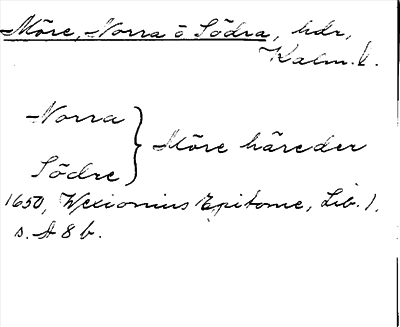 Möre, Norra o Södra, hdr,
Kalm. l.
Norra
} Möre häreder
Södre
1650, Wexionius Epitome, Lib. 1,
s. A 8 b.